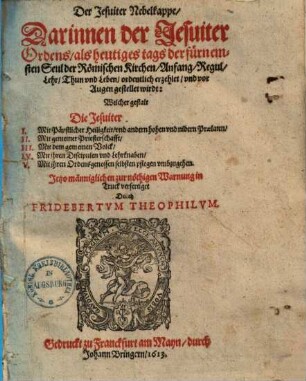 Der Jesuiter Nebelkappe/
Darinnen der Jesuiter
Ordens/als heutiges tags der fürnem-
sten Seul der Römischen Kirchen/Anfang/Regul/
Lehr/Thun vnd Leben/ordentlich erzehlet/vnd vor
Augen gestellet wirdt:
Welcher gestalt
Die Jesuiter
I. Mit Päpstlicher Heiligkeit/vnd andern hohen vnd nidern Prælaten/
II. Mit gemeiner Priesterschafft/
III. Mit dem gemeinen Volck/
IV. Mit ihren Discipulen vnd Lehrknaben/
V. Mit ihren Ordensgenossen selbsten pflegen vmbzugehen.
Jetzo männiglichen zur nöhtigen Warnung in
Truck verfertiget
Durch
FRIDEBERTVM THEOPHILVM.
IN
AUGSBURG
Gedruckt zu Franckfurt am Mayn/durch
Johann Bringern/1613.